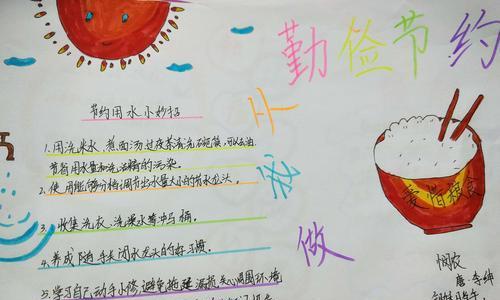 勤俭节约
节约用水小妙招
1、用洗米水、煮面汤、过夜茶清洗碗筷,可以去油,
节省用水量和洗洁精的污染。
2、使用能够分档调节出水量大小的节水龙头。
3、收集洗衣、洗澡水等冲马桶。
4、养成随手关闭水龙头的好习惯。
5、学习自己动手小修,避免拖延漏损,关心周围环境
我
做
爱惜粮食
悯农
唐·李绅